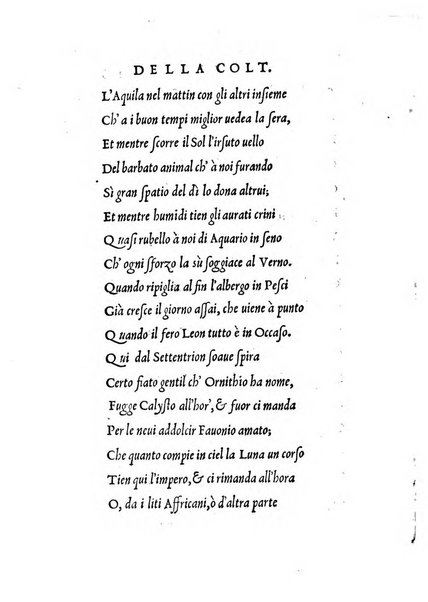 DELLA COLT.
L'Aquila nel mattin con gli altri inſieme
Ch' a i buon tempi miglior uedea la ſera,
Et mentre ſcorre il Sol l'irſuto uello
Del barbato animal ch' à noi furando
Sì gran ſpatio del dì lo dona altrui;
Et mentre humidi tien gli aurati crini
Quaſi rubello à noi di Aquario in ſeno
Ch' ogni ſforzo la sù ſoggiace al Verno.
Quando ripiglia al fin l'albergo in Peſci
Già creſce il giorno aſſai, che uiene à punto
Quando il fero Leon tutto è in Occaſo.
Qui dal Settentrion ſoaue ſpira
Certo fiato gentil ch' Ornithio ha nome,
Fugge Calyſto all'hor', & fuor ci manda
Per le neui addolcir Fauonio amato;
Che quanto compie in ciel la Luna un corſo
Tien qui l'impero, & ci rimanda all'hora
O, da i liti Affricani, ò d'altra parte